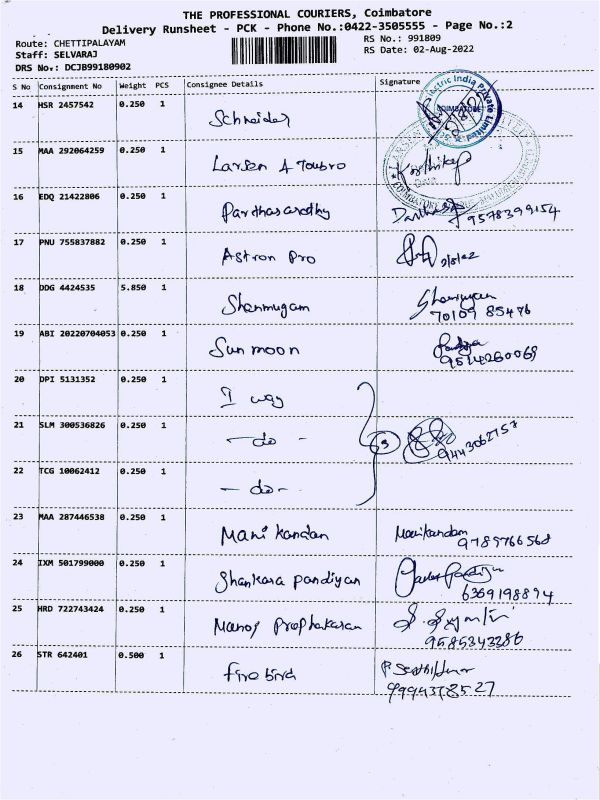 THE PROFESSIONAL COURIERS, Coimbatore
Delivery Runsheet - PCK - Phone No.:0422-3505555 - Page No.:2
Route: CHETTIPALAYAM
RS No.: 991809
Staff: SELVARAJ
RS Date: 02-Aug-2022
DRS No.: DCJB99180902
S No Consignment No Weight PCS Consignee Details Signature
14 HSR 2457542 0.250 1 Schneider
Electric India Private Limited COIMBATORE
15 MAA 292064259 0.250 1 Larsen A Toubro Karthika
16 EDQ 21422806 0.250 1 Parthasarathy 9578399154
17 PNU 755837882 0.250 1 Astron Pro 2/8/22
18 DDG 4424535 5.850 1 Shanmugam
70109 85476
19 ABI 20220704053 0.250 1 Sun moon
9514260069
20 DPI 5131352 0.250 1 I way
21 SLM 300536826 0.250 1 - do - 3 9443062757
22 TCG 10062412 0.250 1 - do -
23 MAA 287446538 0.250 1 Mani kandan Manikandan
9789766568
24 IXM 501799000 0.250 1 Shankara pandiyan
6369198894
25 HRD 722743424 0.250 1 Manoj Praphakaran
9585343286
26 STR 642401 0.500 1 fire bird